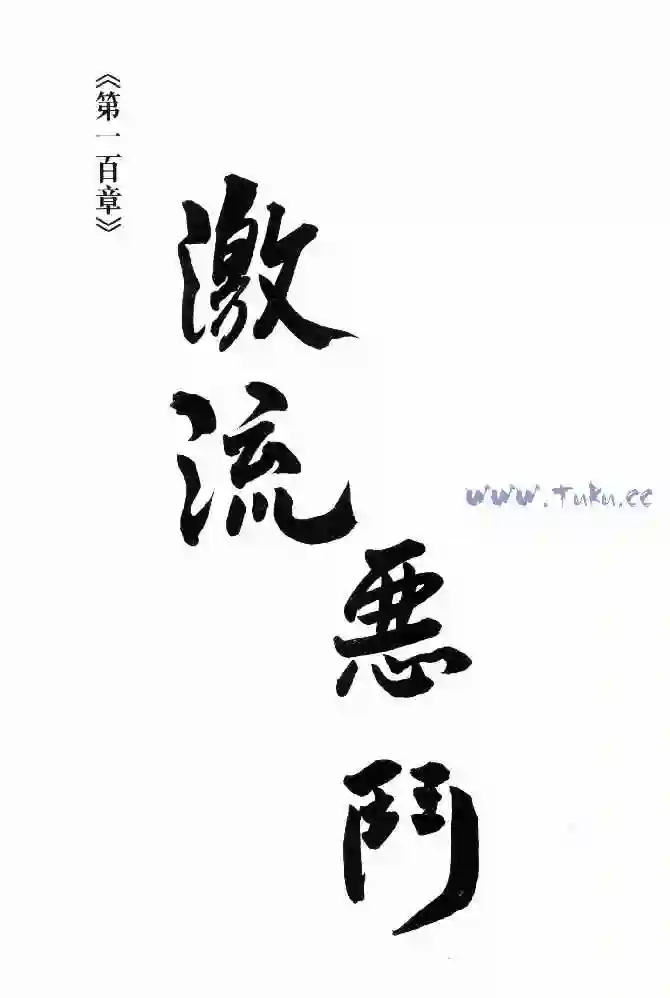 《第一百章》
激流
悪鬥
www.Tuku.cc